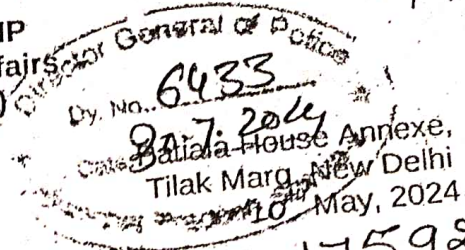 IP
fairs
Director General of Police
Dy. No. 6433
Date 30.7.2024
Patiala House Annexe,
Tilak Marg, New Delhi
10th May, 2024